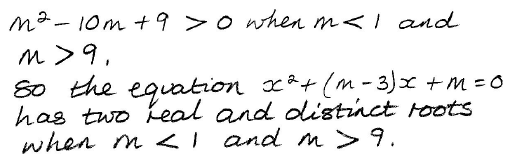 m² - 10m + 9 > 0 when m < 1 and
m > 9.
So the equation x² + (m - 3)x + m = 0
has two real and distinct roots
when m < 1 and m > 9.